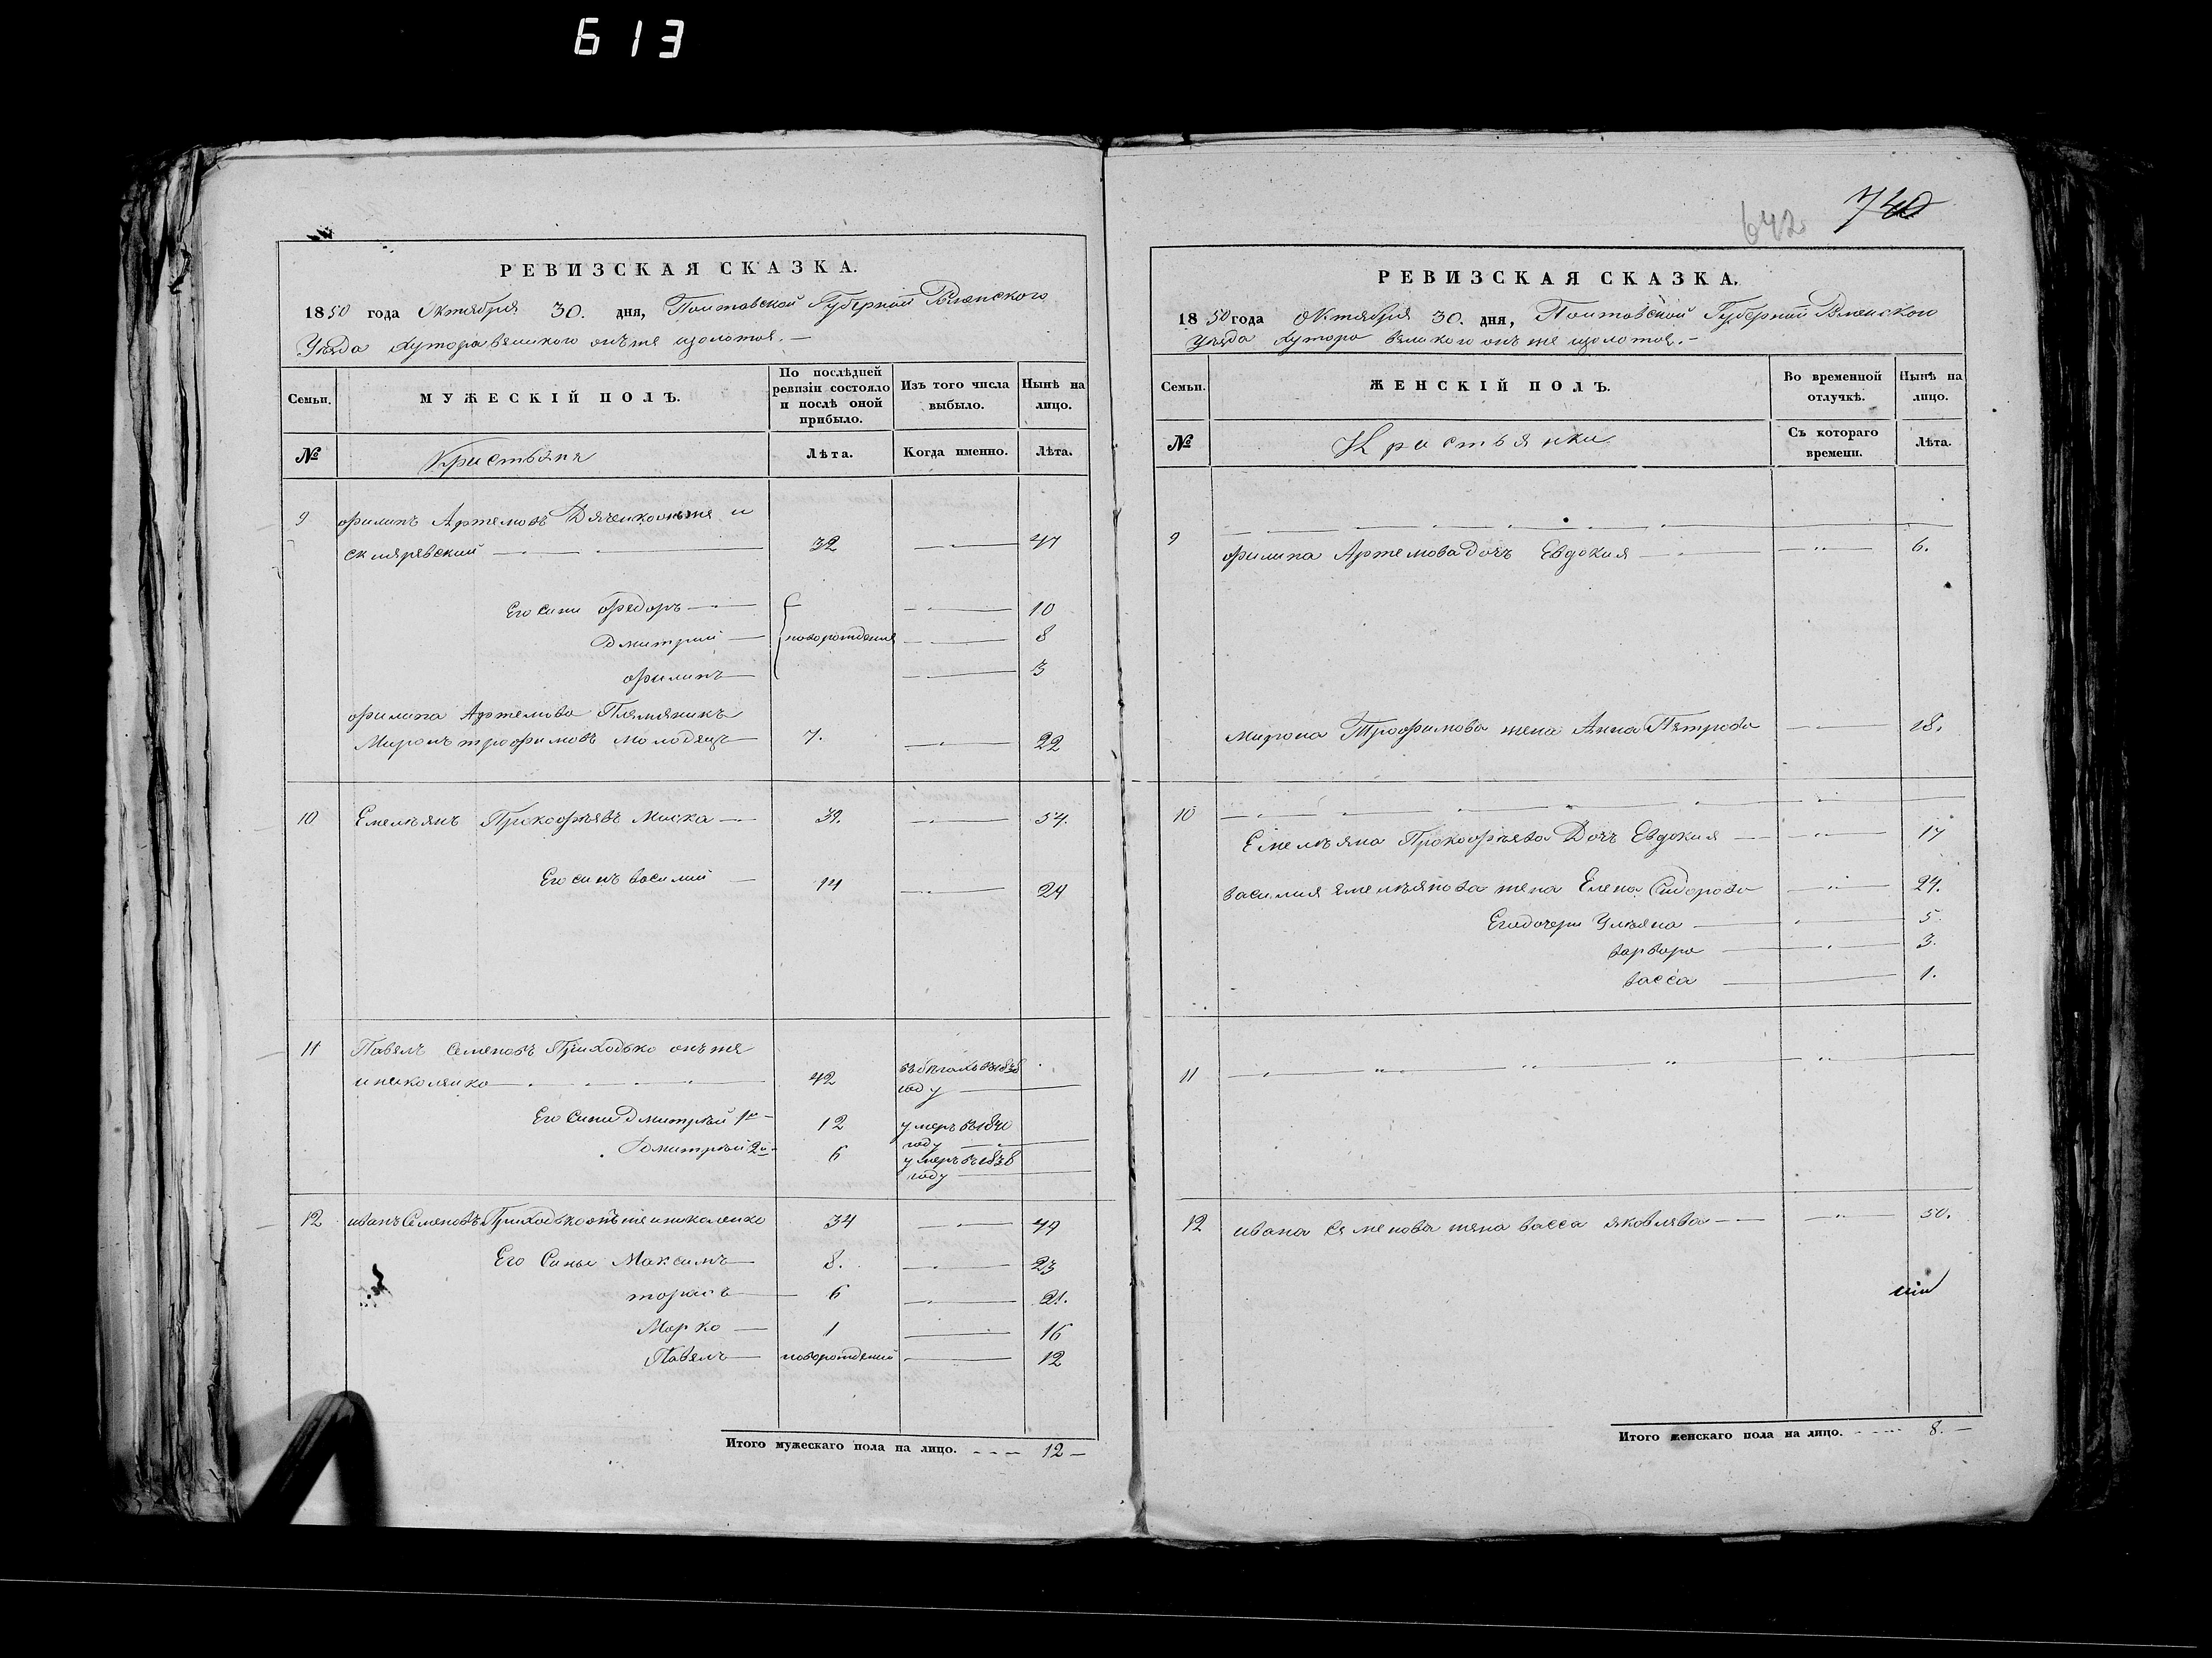 613
РЕВИЗСКАЯ СКАЗКА.
1850 года Октября 30. дня, Полтавской Губерний
Уезда Хутора великого онъ же
Семьи.
МУЖЕСКІЙ ПОЛЪ.
По послѣдней ревизіи состояло и послѣ оной прибыло.
Изъ того числа выбыло.
Нынѣ на лицо.
№
Кристьянѣ
Лѣта.
Когда именно.
Лѣта.
9 Филипъ Артемовъ Дяченко онъ же и
скляревский 32 47
Его сини Федоръ 10
Дмитрий новорождения 8
Филипъ 3
Филипа Артемова Племяникъ
Миронъ трофимовъ молодецъ 7. 22
10 Емельянъ Прокофьевъ Миска 39. 54.
Его синъ василий 24
11 Павелъ Семеновъ Приходько онъ же
и николенко 42 году
Его Сини Дмитрий 1й 12 умеръ въ 1840
году
Дмитрий 2й 6 умеръ въ 1838
году
12 иванъ Семеновъ Приходько онъ же и николенко 34 49
Его Сины Максимъ 8. 23
тарасъ 6 21.
Марко 1 16
Павелъ новорожденый 12
Итого мужескаго пола на лицо. 12
642
740
РЕВИЗСКАЯ СКАЗКА.
1850 года Октября 30. дня, Полтавской Губерний
Уезда Хутора великого онъ же
Семьи.
ЖЕНСКІЙ ПОЛЪ.
Во временной отлучкѣ.
Нынѣ на лицо.
№
Кристьянки
Съ котораго времени.
Лѣта.
9
Филипа Артемова дочъ Евдокия 6.
мирона Трофимова жена Анна Петрова 18.
10
Емельяна Прокофьева Дочъ Евдокия 17
василия емельянова жена Елена Сидорова 24.
Его дочери Ульяна 5.
варвара 3.
васса 1.
11
12 ивана семенова жена васса яковлева 50.
Итого женскаго пола на лицо. 8.